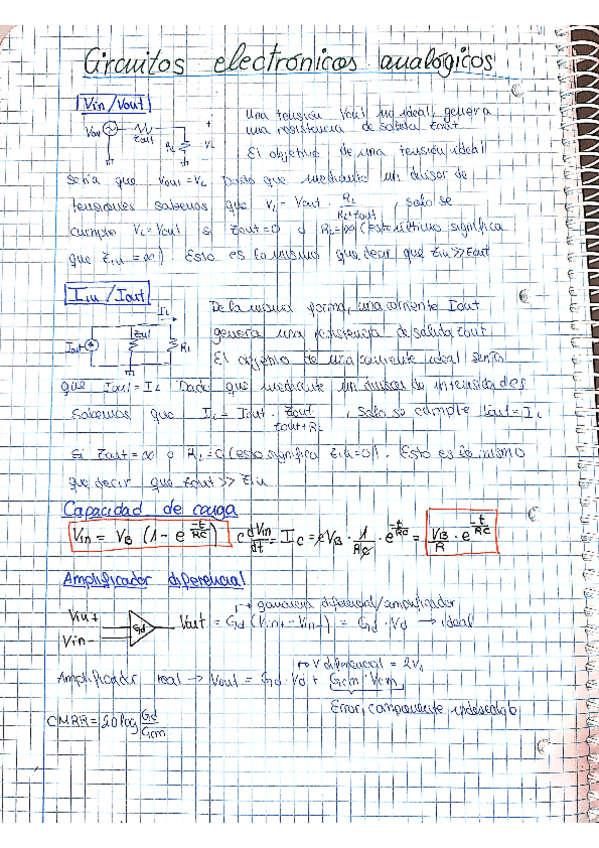 Circuitos electrónicos analógicos
Vin/Vout
Vout Zout RL + VL -
Una tensión Vout no ideal, genera
una resistencia de salida Zout
El objetivo de una tensión ideal
sería que Vout = VL Dado que mediante un divisor de
tensiones sabemos que VL = Vout · RL/(RL+Zout), solo se
cumple VL = Vout si Zout = 0 o RL = ∞ (esto último significa
que Zin = ∞). Esto es lo mismo que decir que Zin >> Zout
Iin/Iout
Iout Zout IL RL
De la misma forma, una corriente Iout
genera una resistencia de salida Zout
El objetivo de una corriente ideal sería
que Iout = IL Dado que mediante un divisor de intensidades
sabemos que IL = Iout · Zout/(Zout+RL), solo se cumple Iout = IL
si Zout = ∞ o RL = 0 (esto significa Zin = 0). Esto es lo mismo
que decir que Zout >> Zin
Capacidad de carga
Vin = VB (1 - e^(-t/RC)) C dVin/dt = IC = CVB · 1/RC · e^(-t/RC) = VB/R · e^(-t/RC)
Amplificador diferencial
→ ganancia diferencial/amplificador
Vin+ Vin- Gd Vout = Gd (Vin+ - Vin-) = Gd · Vd → ideal
→ V diferencial = 2V1
Amplificador real → Vout = Gd · Vd + Gcm · Vcm
Error, componente indeseada
CMRR = 20 log Gd/Gcm